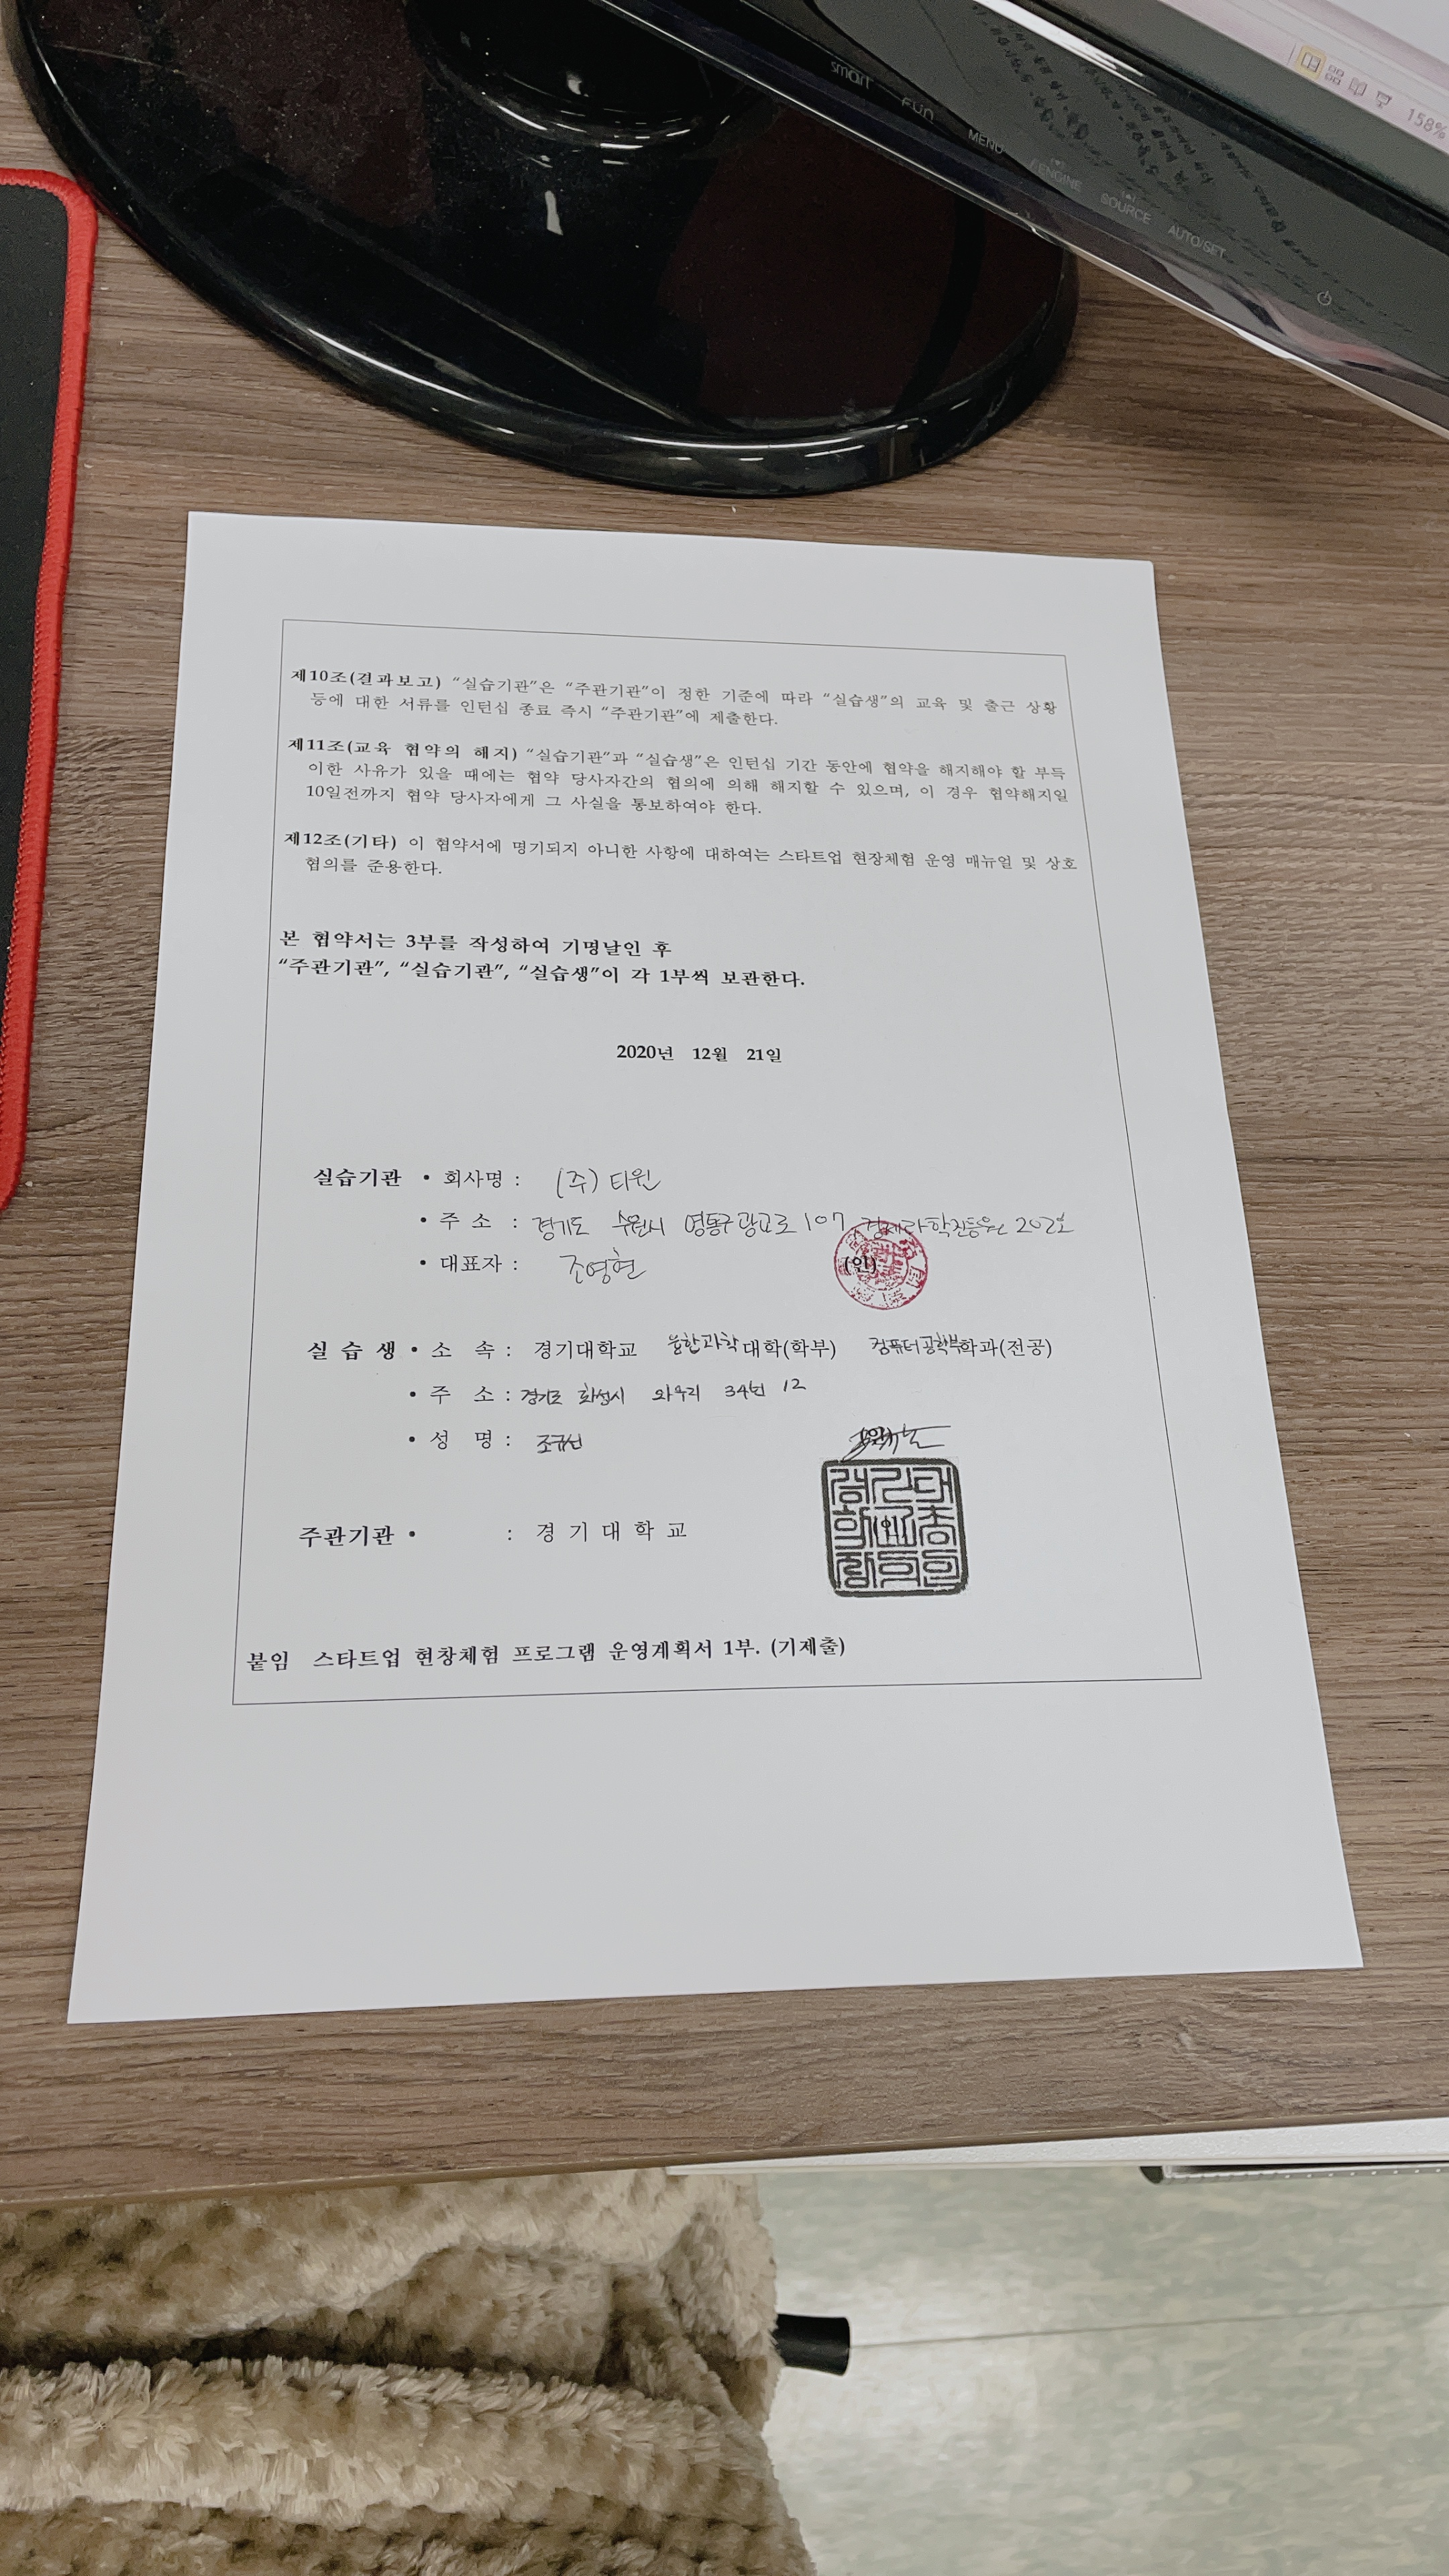 smart
Fun
MENU
f.ENGINE
SOURCE
AUTO/SET
158%
제10조(결과보고) “실습기관”은 “주관기관”이 정한 기준에 따라 “실습생”의 교육 및 출근 상황
등에 대한 서류를 인턴십 종료 즉시 “주관기관”에 제출한다.
제11조(교육 협약의 해지) “실습기관”과 “실습생”은 인턴십 기간 동안에 협약을 해지해야 할 부득
이한 사유가 있을 때에는 협약 당사자간의 협의에 의해 해지할 수 있으며, 이 경우 협약해지일
10일전까지 협약 당사자에게 그 사실을 통보하여야 한다.
제12조(기타) 이 협약서에 명기되지 아니한 사항에 대하여는 스타트업 현장체험 운영 매뉴얼 및 상호
협의를 준용한다.
본 협약서는 3부를 작성하여 기명날인 후
“주관기관”, “실습기관”, “실습생”이 각 1부씩 보관한다.
2020년 12월 21일
실습기관 • 회사명 : (주) 티원
• 주 소 : 경기도 수원시 영통구 광교로 107, 경제과학진흥원 202호
• 대표자 : 조영현 (인)
실 습 생 • 소 속 : 경기대학교 융합과학 대학(학부) 컴퓨터공학부 학과(전공)
• 주 소 : 경기도 화성시 와우리 34번 12
• 성 명 : 조규선
주관기관 • : 경 기 대 학 교
붙임 스타트업 현창체험 프로그램 운영계획서 1부. (기제출)